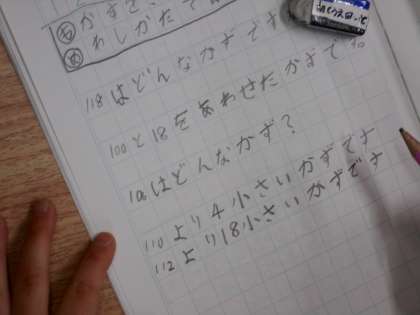 わしかたで
118はどんなかずです
100と18をあわせたかずで
106はどんなかず?
110より4小さいかずです
112より18小さいかずです